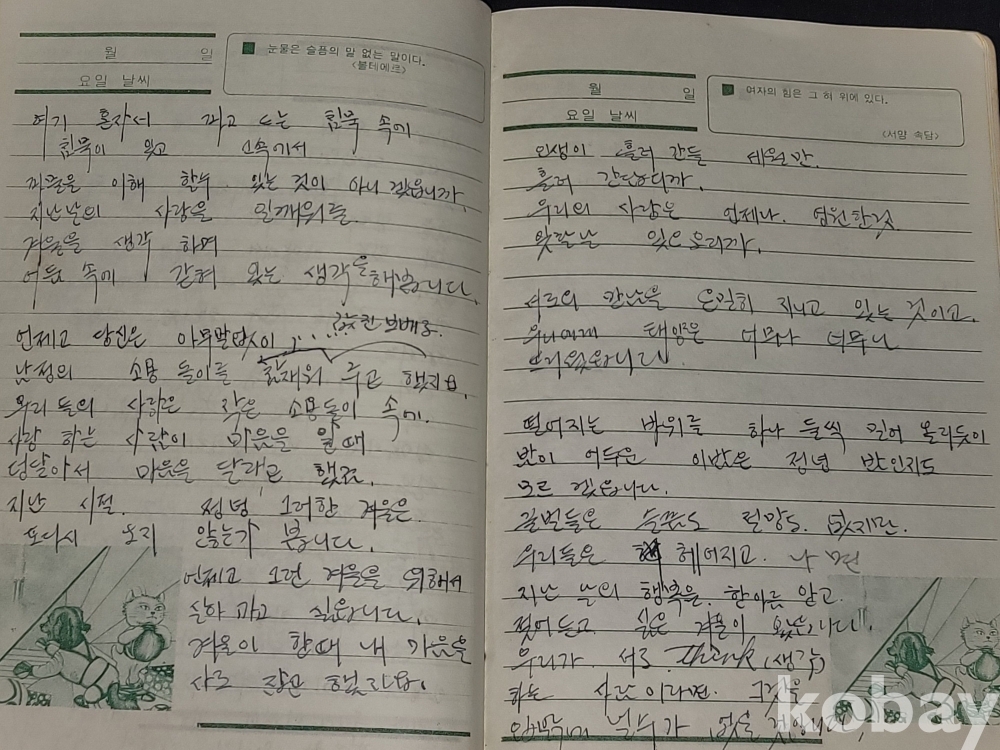 월 일
요일 날씨
눈물은 슬픔의 말 없는 말이다.
<볼테에르>
여기 혼자서 라고 느는 침묵 속에
침묵이 있고 속에서
겨울을 이해 할수 있는 것이 아니겠읍니까.
지난날의 사랑은 일깨워를
겨울을 생각 하며
어둠 속에 갇혀 있는 생각을 해봅니다.
언제고 당신은 아무말없이
보배로.
소용돌이를 주고 했지요
우리 들의 사랑은 작은 소용돌이 속에.
사랑 하는 사람이 마음을 열때
덩달아서 마음을 달래곤 했죠.
지난 시절. 정녕 그러한 겨울은
또다시 오지 않는가 봅니다.
언제고 그런 겨울을 위해서
살아 가고 싶읍니다.
겨울이 할때 내 가음을
사로 잡곤 했지요.
월 일
요일 날씨
여자의 힘은 그 혀 위에 있다.
<서양 속담>
인생이 흘러 간들 세월만.
흘러 간단하리까.
우리의 사랑은 언제나. 영원한것
잊날 있으오리까.
서로의 만남을 은밀히 지니고 있는 것이고.
우리에게 태양은 너무나 너무나
뜨거웠읍니다.
떨어지는 바위를 하나 둘씩 밀어 올리듯이
밤이 어두운 이밤은 정녕 밤인지도
모르 겠읍니다.
길벗들은 슬픔도 절망도. 있지만.
우리들은 헤어지고. 나 면
지난 날의 행복을. 한아름 안고.
젖어들고 싶은 겨울이 옵니다.
우리가. 서로 Think (생각)
하는 사람 이라면. 그것은
수가 없을 것입니다.
kobay